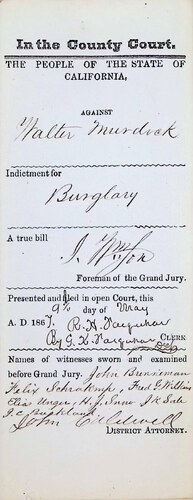 In the County Court.
THE PEOPLE OF THE STATE OF
CALIFORNIA,
AGAINST
Walter Murdock
Indictment for
Burglary
A true bill
Foreman of the Grand Jury.
Presented and filed in open Court, this
9th day of May
A. D. 1867. R. H. Farquhar
CLERK
By G. K. Farquhar Dep
Names of witnesses sworn and examined
before Grand Jury. John Brenneman
Felix Schrakamp, Fred G. Wilkins
Elias Unger, H. J. Snow J. K. Sale
J. C. Buckland
John Caldwell
DISTRICT ATTORNEY.